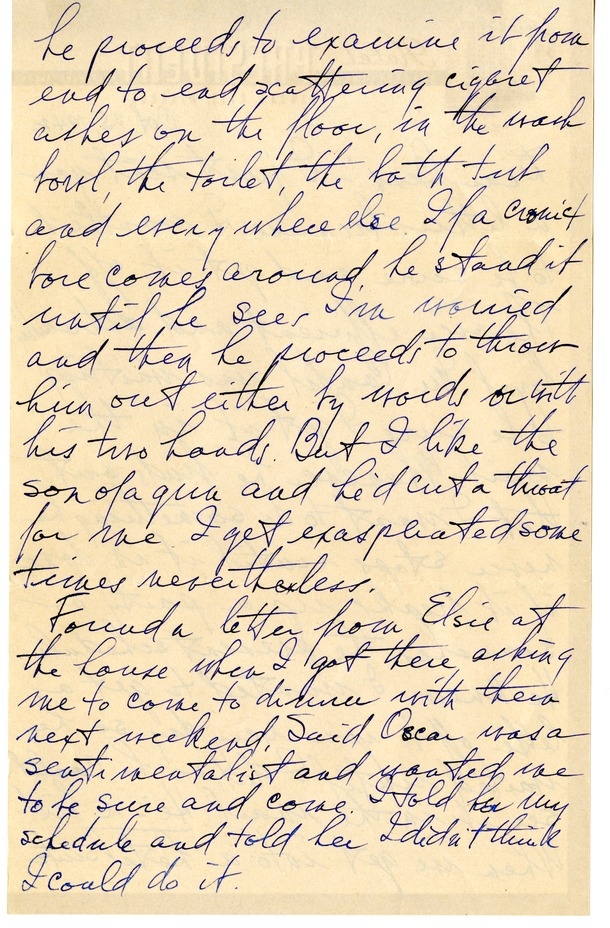 he proceeds to examine it from
end to end scattering cigaret
ashes on the floor, in the wash
bowl, the toilet, the bath tub
and every where else. If a cronic
bore comes around, he stands it
until he sees I'm worried
and then he proceeds to throw
him out either by words or with
his two hands. But I like the
son of a gun and he'd cut a throat
for me. I get exasperated some
times nevertheless.
Found a letter from Elsie at
the house when I got there, asking
me to come to dinner with them
next weekend. Said Oscar was a
sentimentalist and wanted me
to be sure and come. I told her my
schedule and told her I didn't think
I could do it.